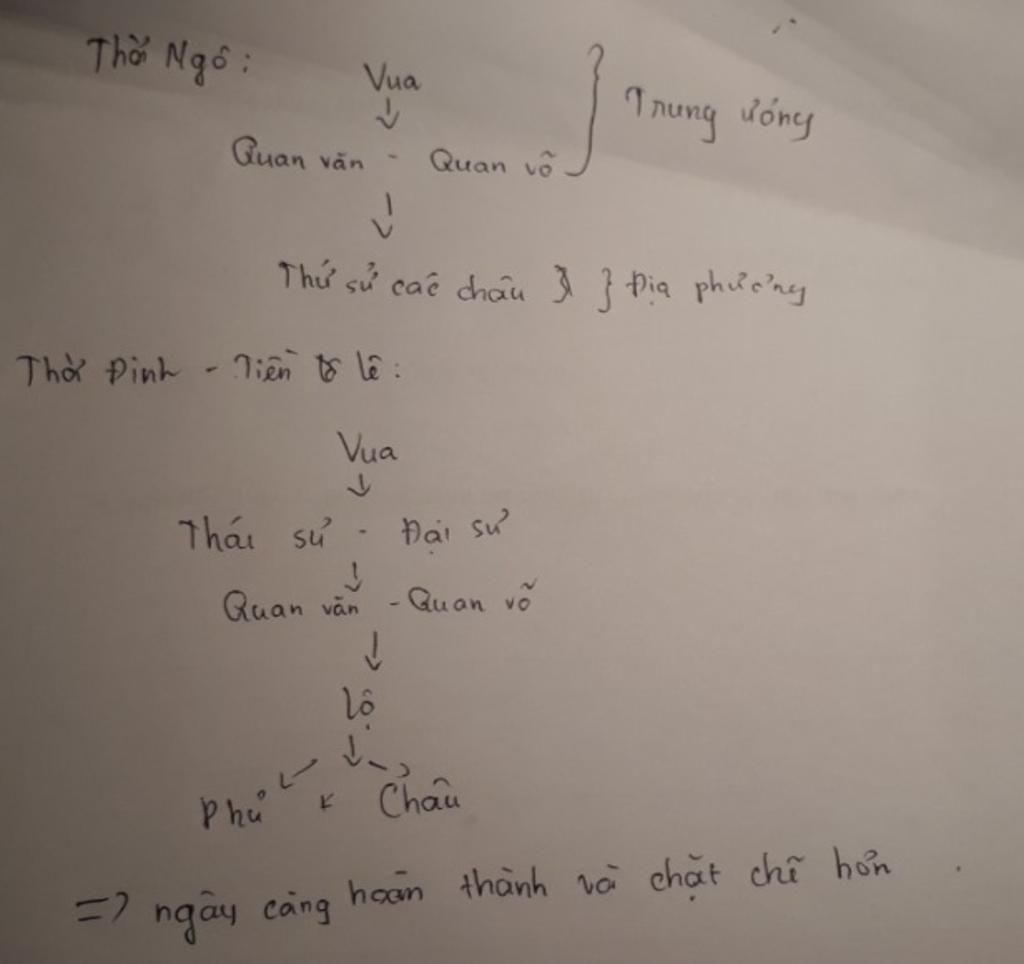 Thời Ngô:
Vua
Quan văn - Quan võ } Trung ương
Thứ sử các châu } Địa phương
Thời Đinh - Tiền Lê:
Vua
Thái sư - Đại sư
Quan văn - Quan võ
Lộ
Phủ Châu
=> ngày càng hoàn thành và chặt chẽ hơn